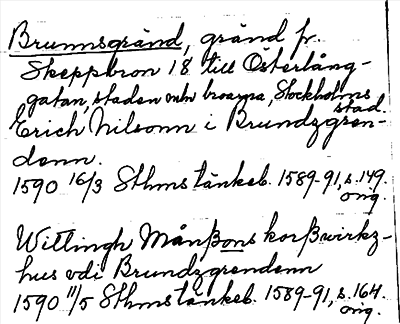 Brunnsgränd, gränd fr.
Skeppsbron 18 till Österlång-
gatan, staden inom broarna, Stockholms
stad.
Erich Nilsonn i Brundzgren-
denn.
1590 16/3 Sthms tänkeb. 1589-91, s. 149.
orig.
Willingh Månßons korßvirkz-
hus vdi Brundzgrendenn
1590 11/5 Sthms tänkeb. 1589-91, s. 164.
orig.